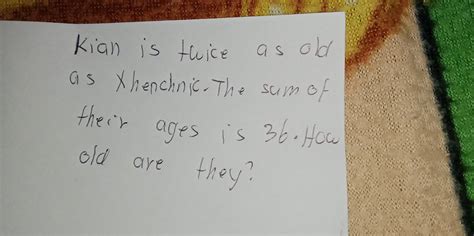 Kian is twice as old
as Xhenchnic. The sum of
their ages is 36. How
old are they?